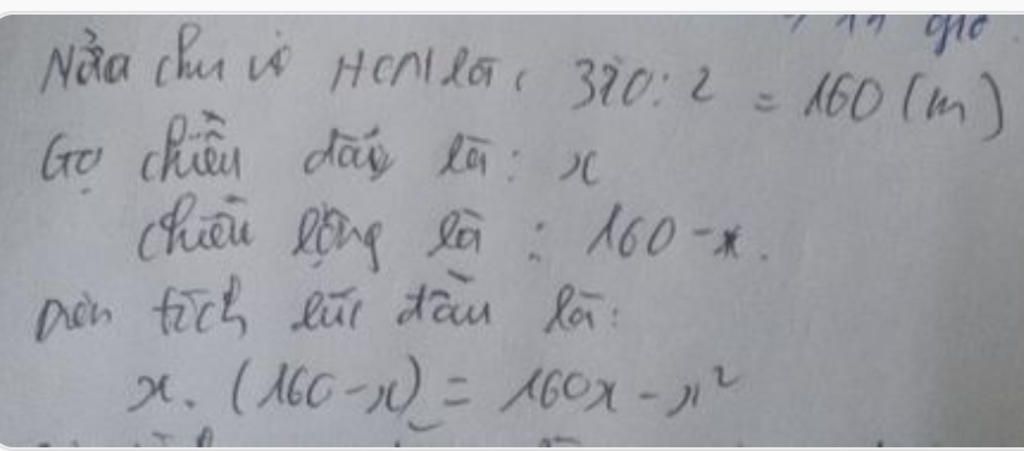 11 giờ
Nửa chu vi HCN là: 320:2 = 160 (m)
Gọ chiều dài là: x
chiều rộng là : 160-x.
Diện tích lúc đầu là:
x. (160-x) = 160x - x²